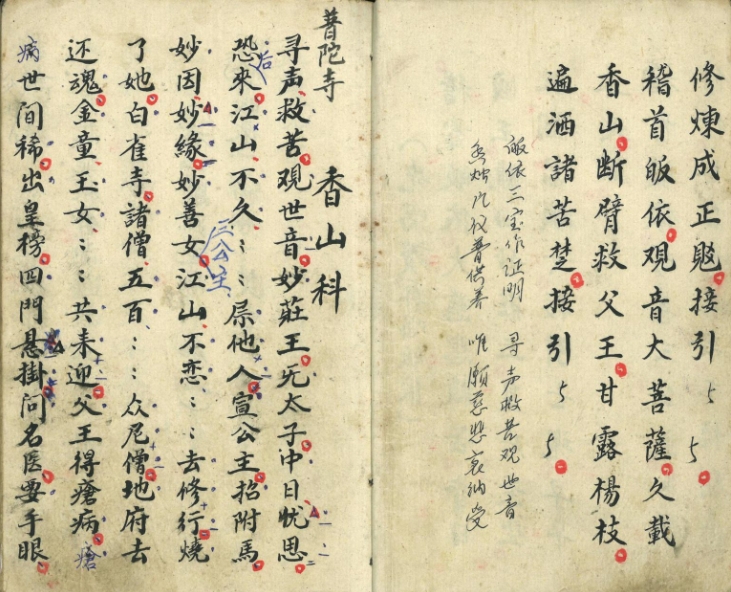 修煉成正覺接引ㄣㄣ
稽首皈依观音大菩薩久载
香山断臂救父王甘露楊枝
遍洒諸苦楚接引ㄣㄣ
皈依三宝作证明 寻声救苦观世音
香烛凡仪普供养 唯願慈悲哀纳受
普陀寺 香山科
寻声救苦观世音妙莊王旡太子中日忧思
恐后來江山不久：：屎他人宣公主招附馬
妙因妙緣妙善女三公主江山不恋：：去修行燒
了她白雀寺諸僧五百：：众尼僧地府去
还魂金童玉女：：共耒迎父王得瘡病瘡
病世间稀出皇榜四門悬掛问名医要手眼